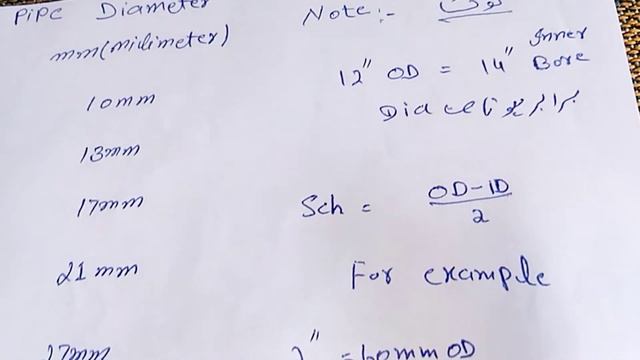 Pipe Diameter
mm(milimeter)
10mm
13mm
17mm
21mm
27mm
Note:- نوٹ
12" OD = 14" Inner Bore
Dia کے برابر ہوتا ہے
Sch = OD-ID
2
For example
2" = 60mm OD